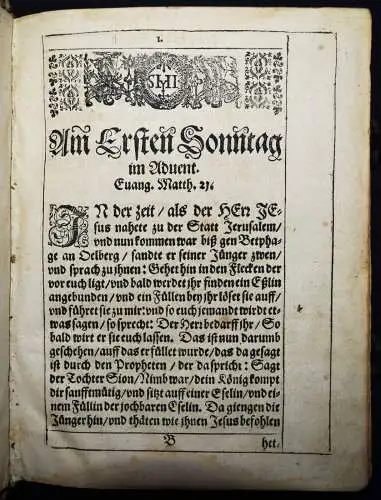 1.
IHS
Am Ersten Sonntag
im Aduent.
Euang. Matth. 21.
IN der zeit / als der HErr JE-
sus nahete zu der Statt Jerusalem/
vnd nun kommen war biß gen Betpha-
ge an Oelberg / sandte er seiner Jünger zwen/
vnd sprach zu jhnen: Gehet hin in den Flecken der
vor euch ligt/vnd bald werdet jhr finden ein Eßlin
angebunden / vnd ein Füllen bey jhr löset sie auff/
vnd führet sie zu mir: vnd so euch jemand wirdt et-
was sagen/ so sprecht: Der Herr bedarff jhr / So
bald wirt er sie euch lassen. Das ist nun darumb
geschehen/auff das er füllet wurde/das da gesagt
ist durch den Propheten / der da spricht: Sagt
der Tochter Sion/Nimb war/dein König kompt
dir sanfftmütig/vnd sitzt auff einer Eselin/vnd ei-
nem Füllin der jochbaren Eselin. Da giengen die
Jünger hin/vnd thäten wie jhnen Jesus befohlen
B
het/